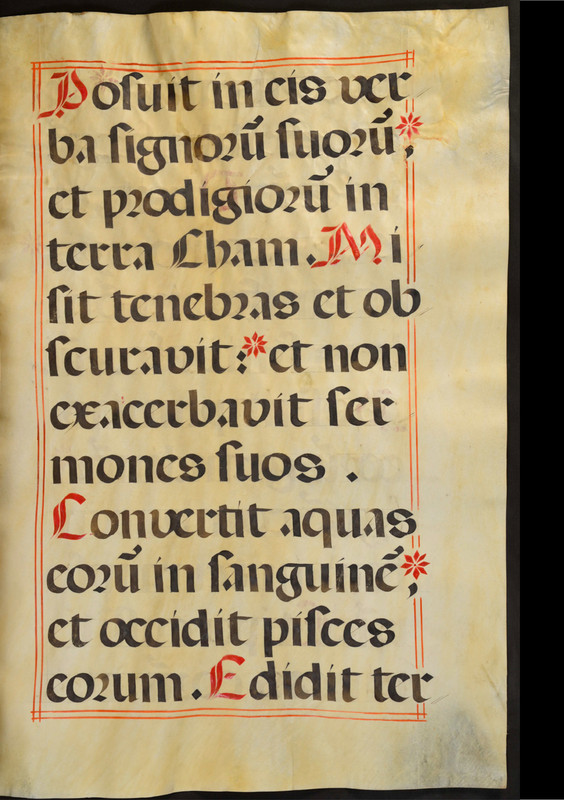 Poſuit in eis ver
ba ſignorũ ſuorũ*;
et prodigiorũ in
terra Cham. Mi
ſit tenebras et ob
ſcuravit:* et non
exacerbavit ſer
mones ſuos .
Convertit aquas
eorũ in ſanguinẽ*;
et occidit piſces
eorum. Edidit ter